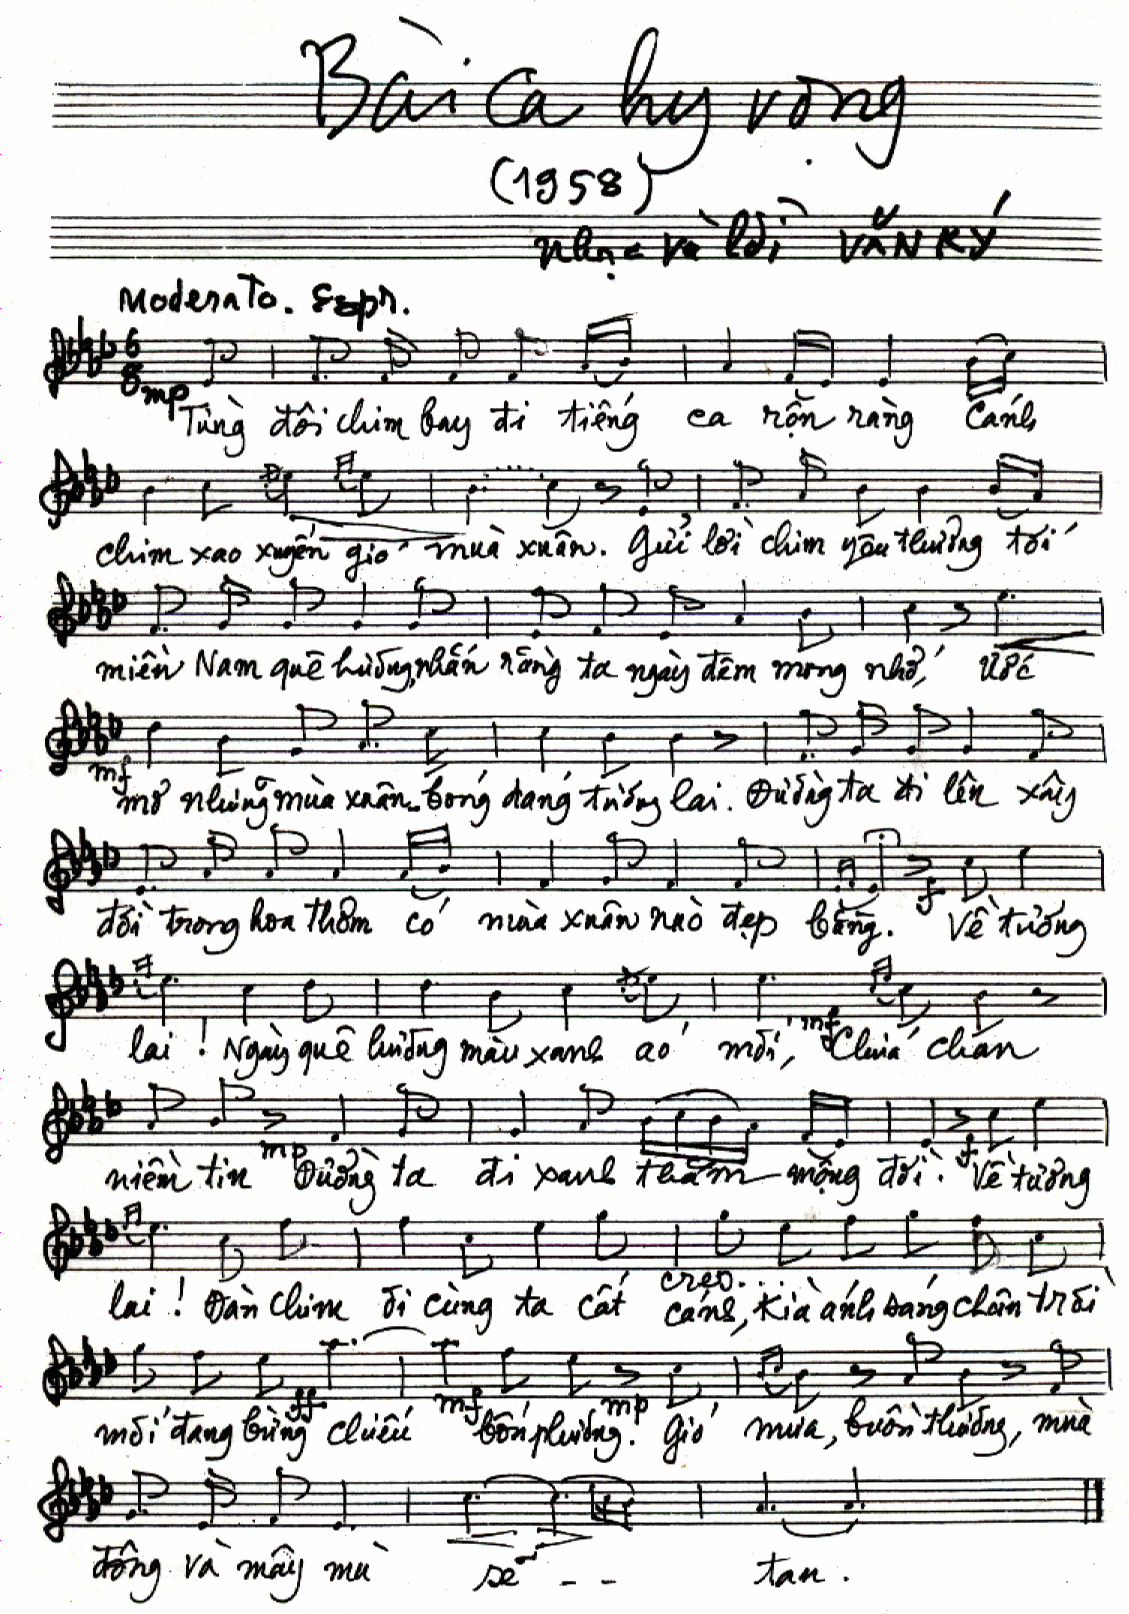 Bài ca hy vọng
(1958)
nhạc và lời VĂN KÝ
Moderato. Espr.
6
8
mp
Từng đôi chim bay đi tiếng ca rộn ràng Cánh
chim xao xuyến gió mùa xuân. Gửi lời chim yêu thương tới
miền Nam quê hương, nhắn rằng ta ngày đêm mong nhớ, Ước
mf
mơ những mùa xuân bóng dáng tương lai. Đường ta đi lên xây
đời trong hoa thơm có mùa xuân nào đẹp bằng. Về tương
f
lai! Ngày quê hương màu xanh áo mới, Chứa chan
mf
niềm tin Đường ta đi xanh thắm mộng đời. Về tương
mp f
lai! Đàn chim đi cùng ta cất cánh, Kìa ánh sáng chân trời
cresc....
mới đang bừng chiếu bốn phương. Gió mưa, buồn thương, mùa
ff mf mp
đông và mây mù sẽ - - tan.